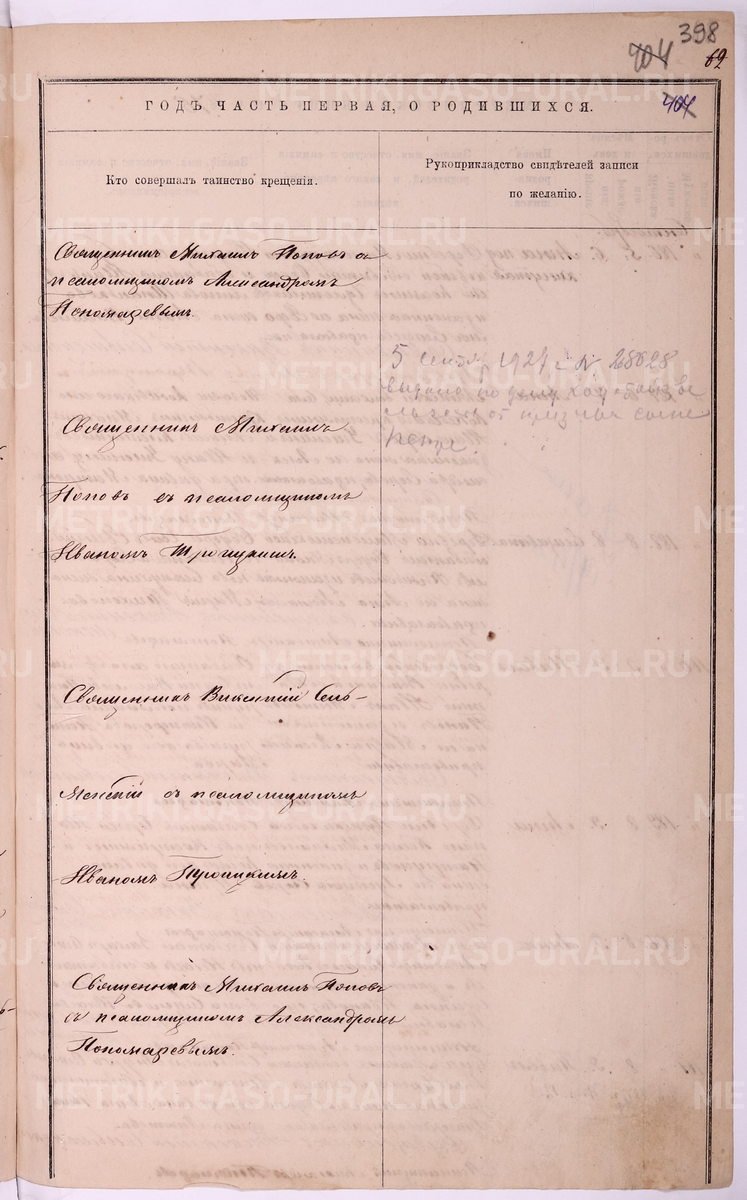 398
404
69
ГОДЪ ЧАСТЬ ПЕРВАЯ, О РОДИВШИХСЯ.
404
Кто совершалъ таинство крещенія.
Рукоприкладство свидѣтелей записи
по желанію.
Священникъ Михаилъ Поповъ съ
псаломщикомъ Александромъ
Пономаревымъ.
5 сентяб 1921 г. № 28628
выдано по
Священникъ Михаилъ
Поповъ съ псаломщикомъ
Иваномъ Троицкимъ.
Священникъ Викентій Сель-
менскій съ псаломщикомъ
Иваномъ Троицкимъ.
Священникъ Михаилъ Поповъ
съ псаломщикомъ Александромъ
Пономаревымъ.
METRIKI.GASO-URAL.RU